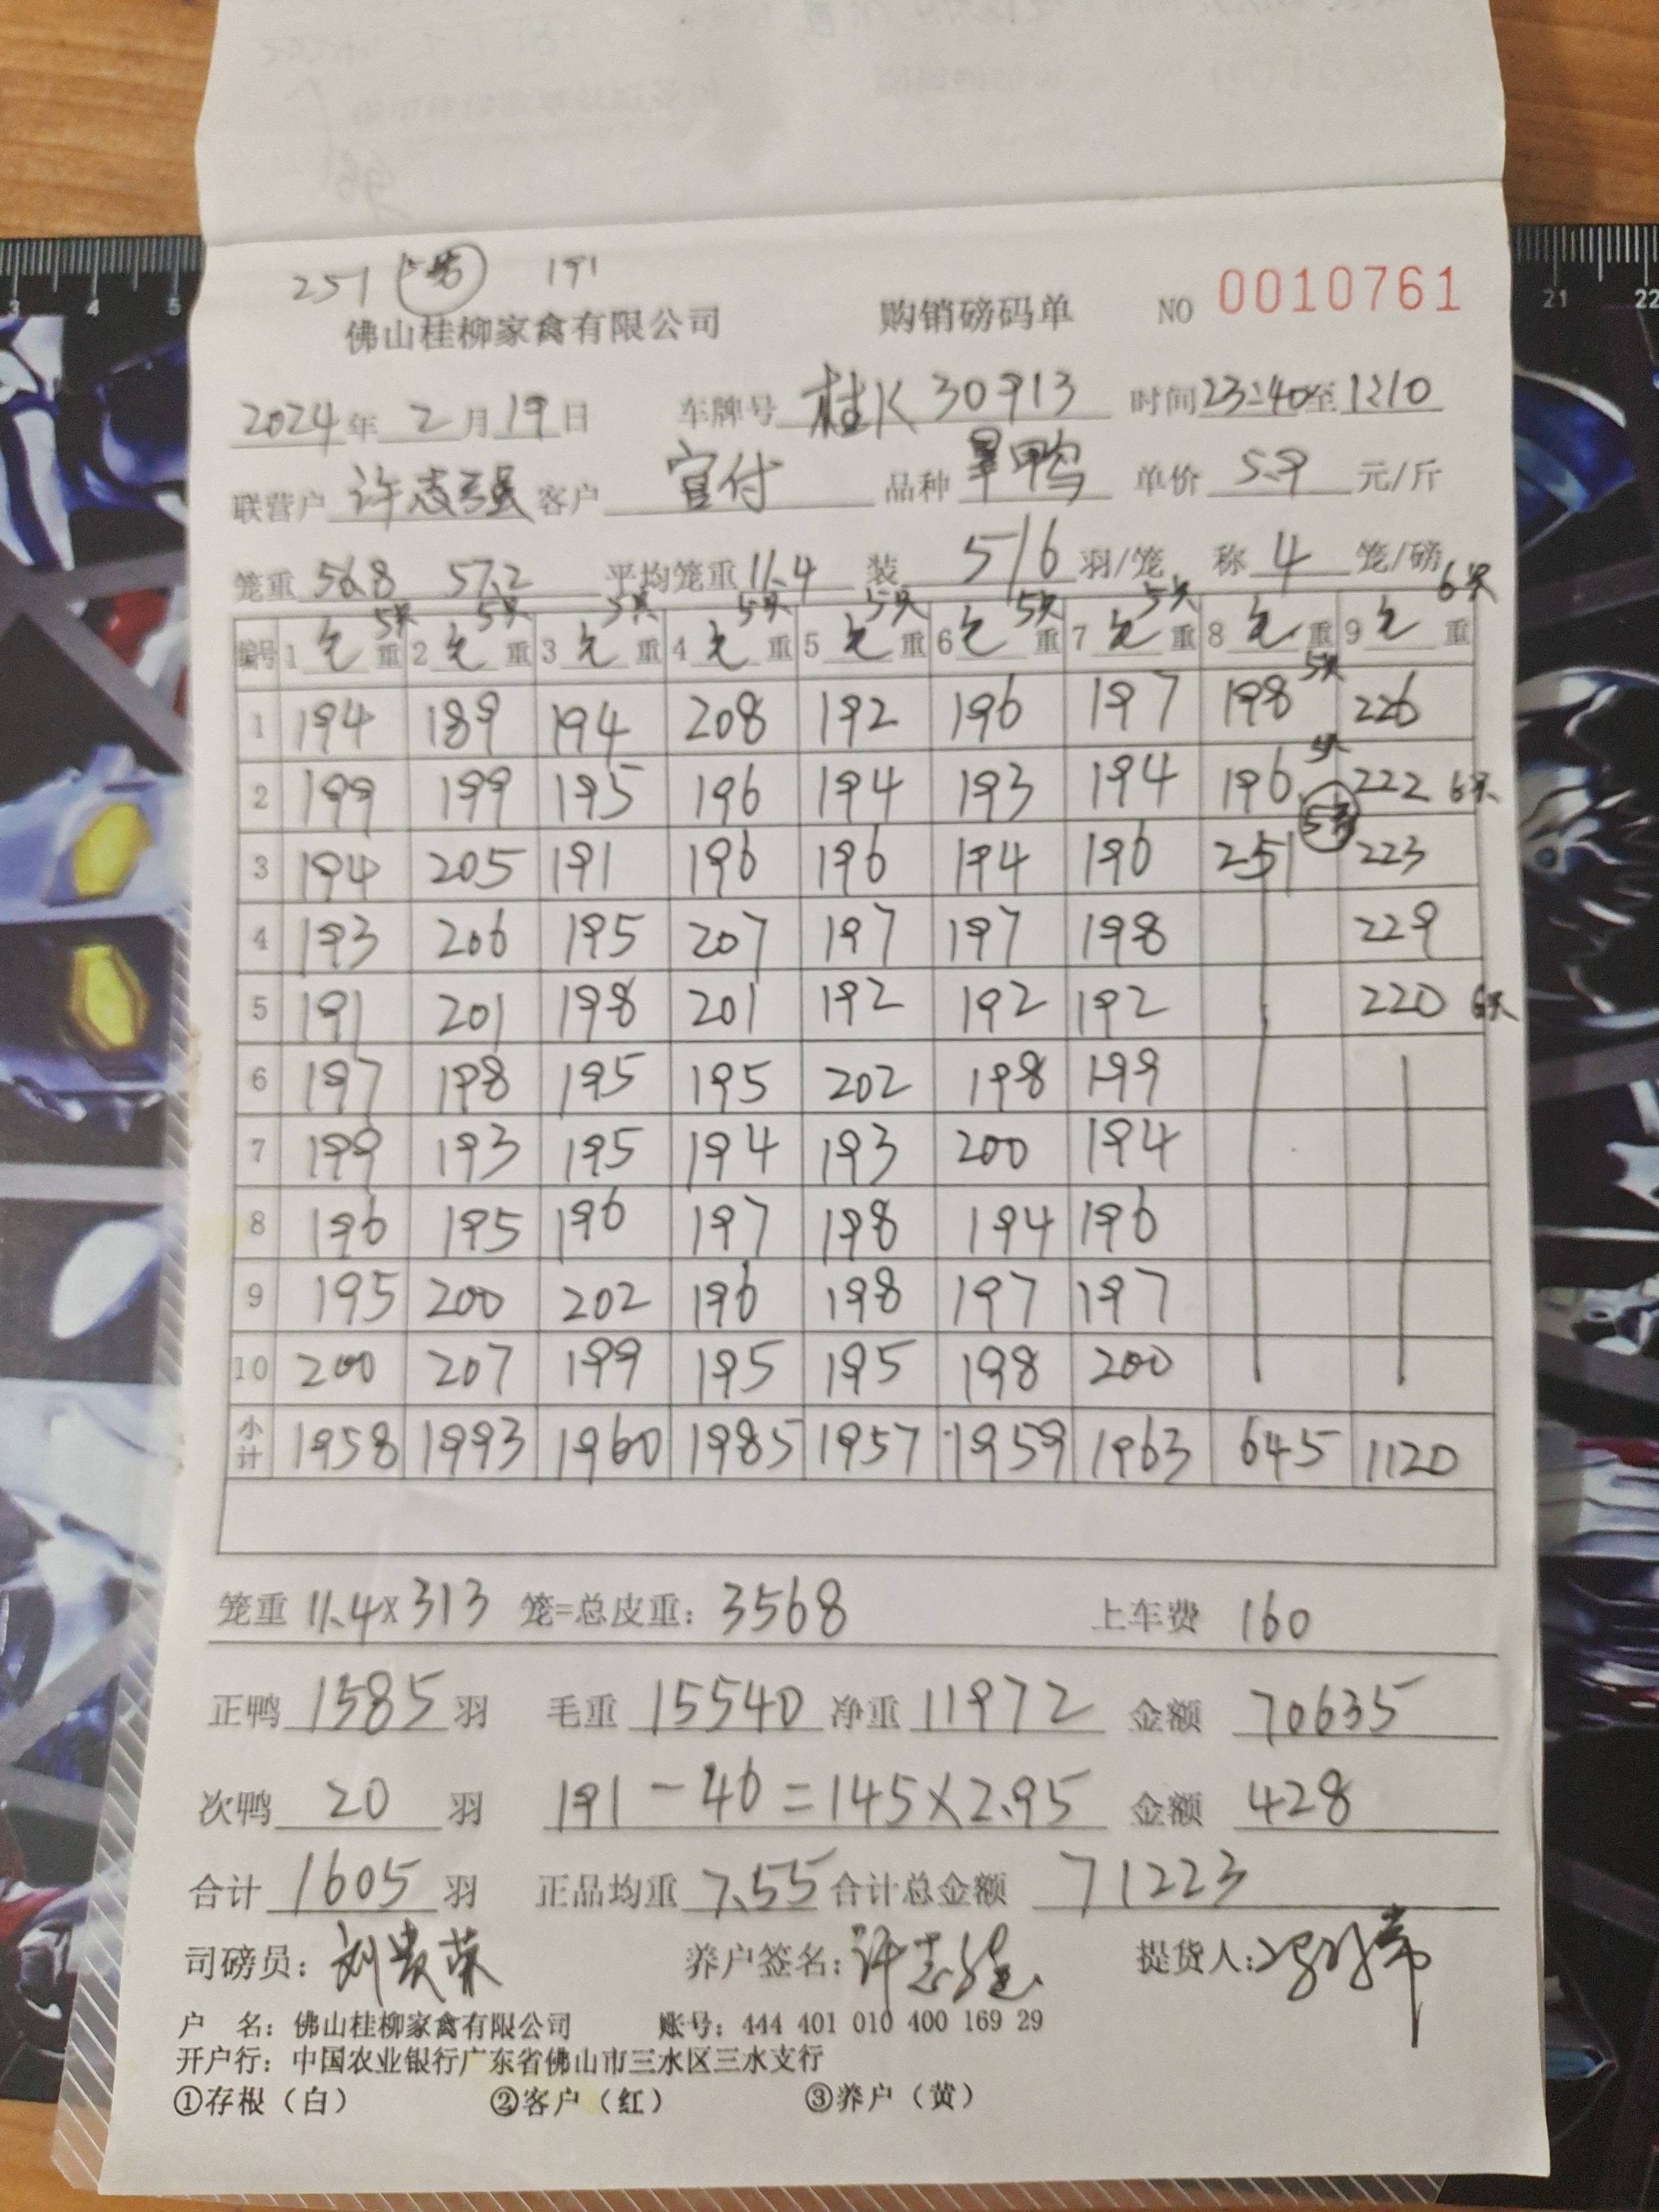 251 191
佛山桂柳家禽有限公司 购销磅码单 NO 0010761
2024年 2月19日 车牌号 桂K30913 时间23:40至1:10
联营户 许志强 客户 官付 品种 单价 5.9 元/斤
笼重 56.8 57.2 平均笼重 11.4 装 5/6 羽/笼 称 4 笼/磅
5只 5只 5只 5只 5只 5只 5只 6只
编号 1 毛重 2 毛重 3 毛重 4 毛重 5 毛重 6 毛重 7 毛重 8 毛重 9 毛重
1 194 189 194 208 192 196 197 198 5只 226
2 199 199 195 196 194 193 194 196 5只 222 6只
3 194 205 191 196 196 194 196 251 223
4 193 206 195 207 197 197 198 229
5 191 201 198 201 192 192 192 220 6只
6 197 198 195 195 202 198 199
7 199 193 195 194 193 200 194
8 196 195 196 197 198 194 196
9 195 200 202 196 198 197 197
10 200 207 199 195 195 198 200
小计 1958 1993 1960 1985 1957 1959 1963 645 1120
笼重 11.4×313 笼=总皮重: 3568 上车费 160
正鸭 1585 羽 毛重 15540 净重 11972 金额 70635
次鸭 20 羽 191-46=145×2.95 金额 428
合计 1605 羽 正品均重 7.55 合计总金额 71223
司磅员: 刘贵荣 养户签名: 许志强 提货人:
户 名: 佛山桂柳家禽有限公司 账号: 444 401 010 400 169 29
开户行: 中国农业银行广东省佛山市三水区三水支行
①存根（白） ②客户（红） ③养户（黄）